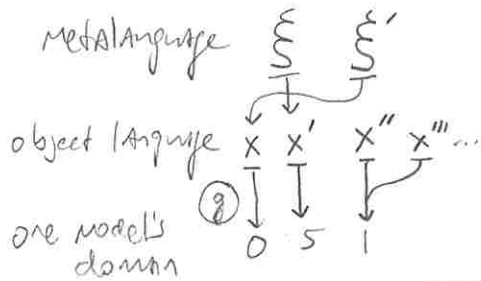 Metalanguage ξ ξ′
object language x x′ x″ x‴ ...
g
one model's 0 5 1
domain